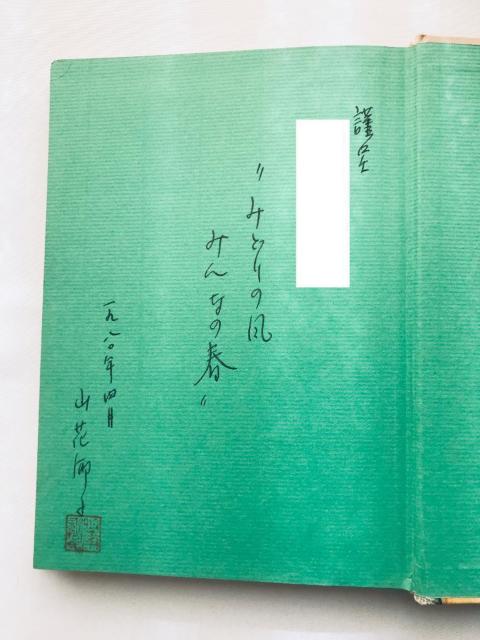 謹呈
"みどりの風
みんなの春"
一九八〇年四月
山花郁子